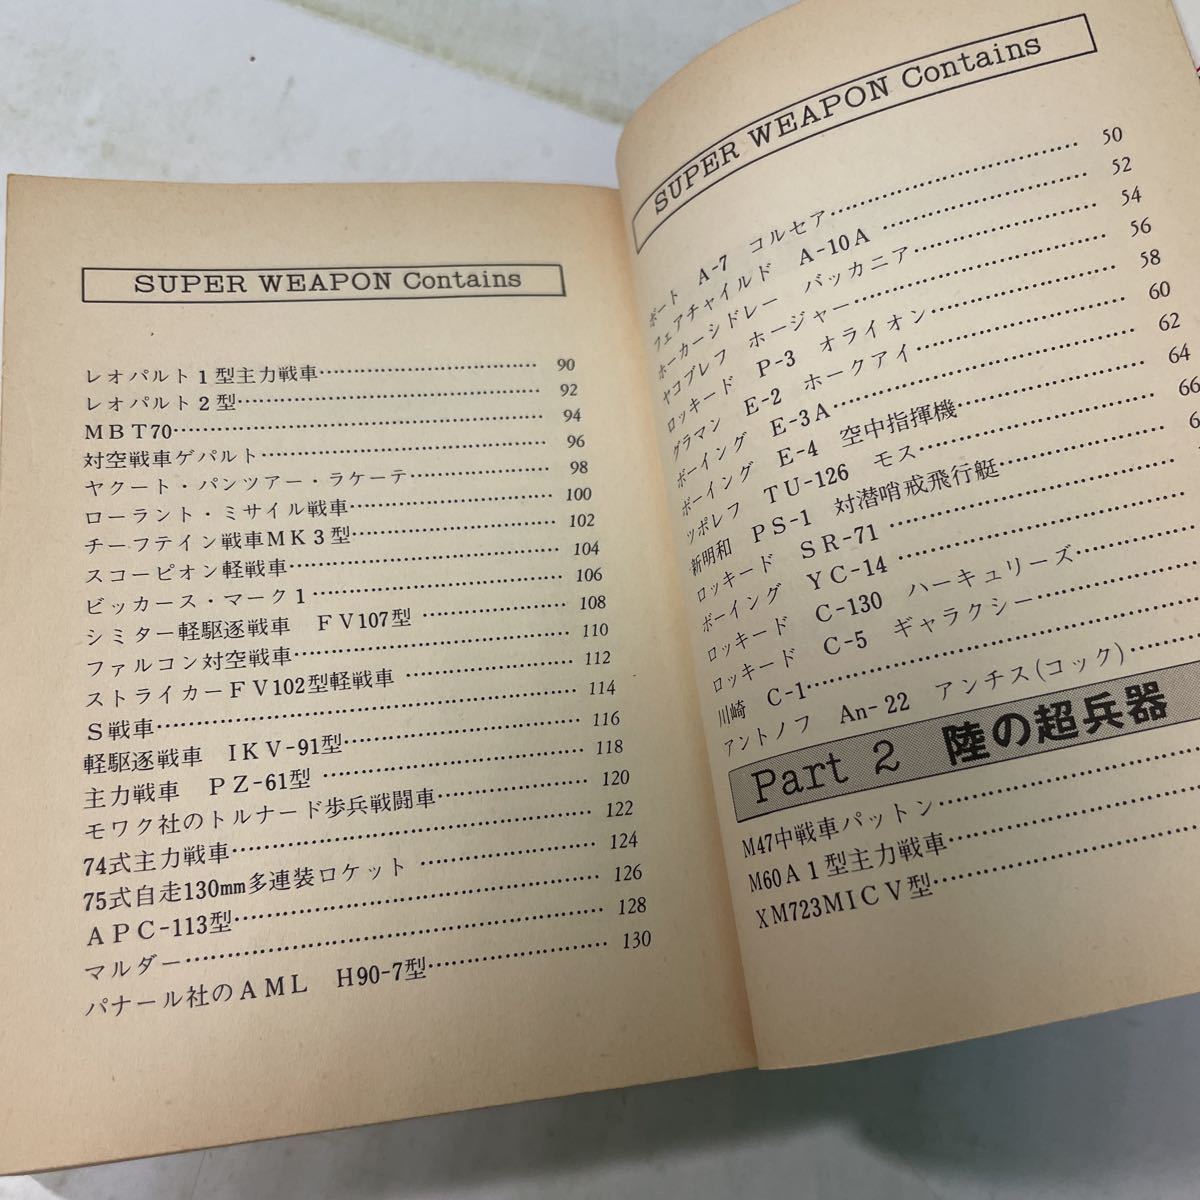 SUPER WEAPON Contains
ボート A-7 コルセア…………50
フェアチャイルド A-10A…………52
ホーカーシドレー バッカニア…………54
ヤコブレフ ホージャー…………56
ロッキード P-3 オライオン…………58
グラマン E-2 ホークアイ…………60
ボーイング E-3A…………62
ボーイング E-4 空中指揮機…………64
ツポレフ TU-126 モス…………66
新明和 PS-1 対潜哨戒飛行艇…………
ロッキード SR-71…………
ボーイング YC-14…………
ロッキード C-130 ハーキュリーズ…………
ロッキード C-5 ギャラクシー…………
川崎 C-1…………
アントノフ An-22 アンチス(コック)…………
Part 2 陸の超兵器
M47中戦車パットン…………
M60A1型主力戦車…………
XM723MICV型…………
SUPER WEAPON Contains
レオパルト1型主力戦車…………90
レオパルト2型…………92
MBT70…………94
対空戦車ゲパルト…………96
ヤクート・パンツアー・ラケーテ…………98
ローラント・ミサイル戦車…………100
チーフテイン戦車MK3型…………102
スコーピオン軽戦車…………104
ビッカース・マーク1…………106
シミター軽駆逐戦車 FV107型…………108
ファルコン対空戦車…………110
ストライカーFV102型軽戦車…………112
S戦車…………114
軽駆逐戦車 IKV-91型…………116
主力戦車 PZ-61型…………118
モワク社のトルナード歩兵戦闘車…………120
74式主力戦車…………122
75式自走130mm多連装ロケット…………124
APC-113型…………126
マルダー…………128
パナール社のAML H90-7型…………130